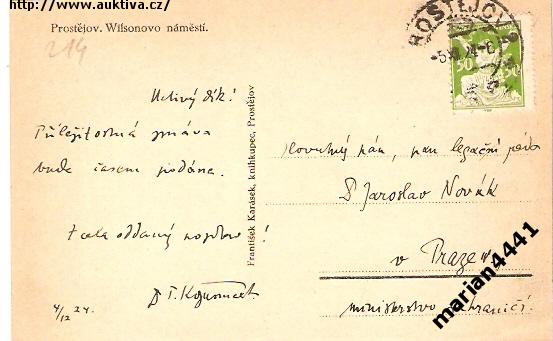 http://www.auktiva.cz/
Prostějov. Wilsonovo náměstí.
214
PROSTĚJOV
50 50
Uctivý dík!
Příležitostná zpráva
bude časem podána.
zcela oddaný
Dr T.
4/12 24.
František Karásek, knihkupec, Prostějov
Slovutný pán, pan legační rada
Dr Jaroslav Novák
v Praze
ministerstvo zahraničí.
marian4441